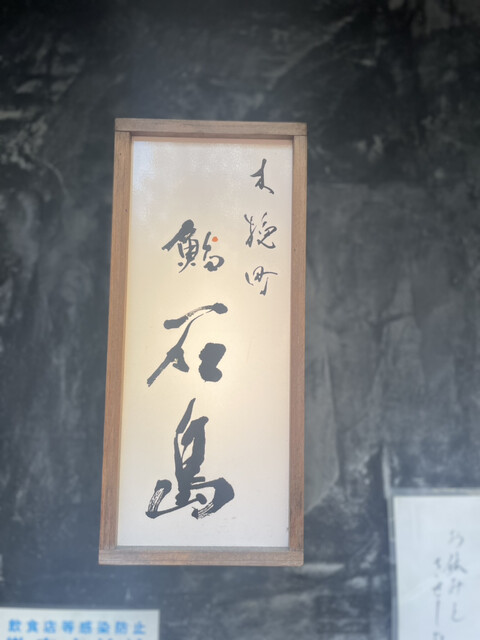 木挽町
鮨 石島
お休みと
飲食店等感染防止